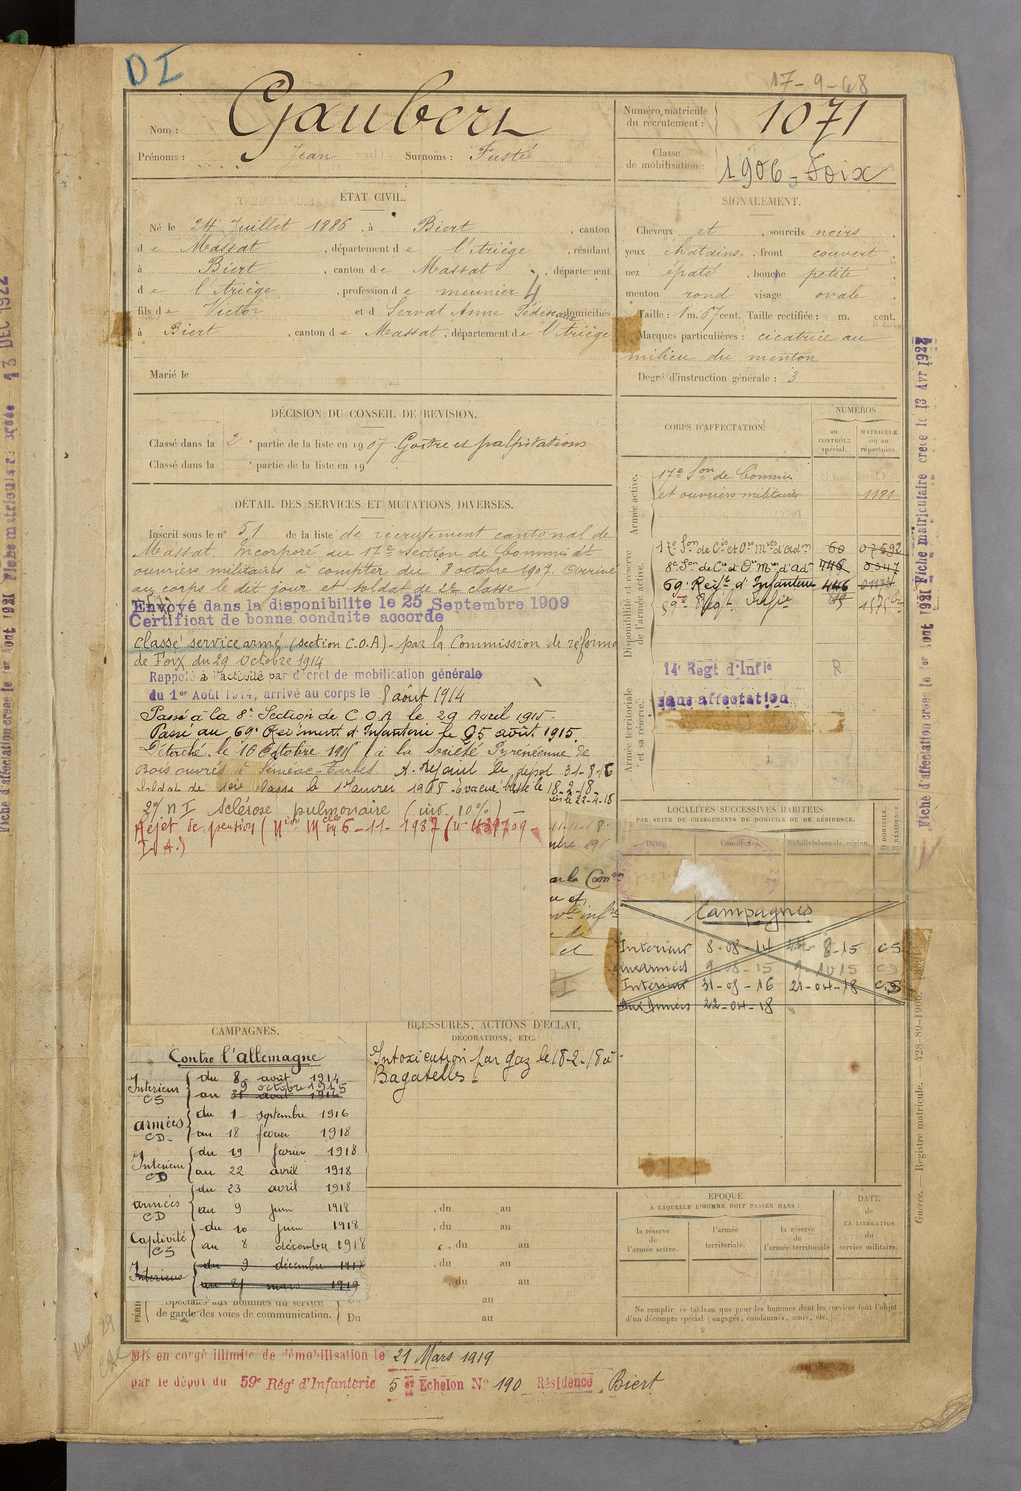 DI
17-9-68
Nom : Gaubert
Prénoms : Jean Surnoms : Fusté
Numéro matricule du recrutement : 1071
Classe de mobilisation : 1906 - Foix
ÉTAT CIVIL.
Né le 24 Juillet 1886, à Biert, canton
de Massat, département de l'Ariège, résidant
à Biert, canton de Massat, département
de l'Ariège, profession de meunier 4
fils de Victor et de Servat Anne domiciliés
à Biert, canton de Massat, département de l'Ariège
Marié le
SIGNALEMENT.
Cheveux et, sourcils noirs
yeux chatains, front couvert
nez épaté, bouche petite
menton rond visage ovale
Taille : 1 m. 67 cent. Taille rectifiée : m. cent.
Marques particulières : cicatrice au
milieu du menton
Degré d'instruction générale : 3
DÉCISION DU CONSEIL DE REVISION.
Classé dans la 2e partie de la liste en 1907. Goitre et palpitations
Classé dans la e partie de la liste en 19
DÉTAIL DES SERVICES ET MUTATIONS DIVERSES.
Inscrit sous le n° 51 de la liste de recrutement cantonal de
Massat. Incorporé au 17e Section de Commis et
ouvriers militaires à compter du 8 octobre 1907. Arrivé
au corps le dit jour et soldat de 2e classe
Envoyé dans la disponibilite le 25 Septembre 1909
Certificat de bonne conduite accordé
Classé service armé (section C.O.A) par la Commission de réforme
de Foix du 29 Octobre 1914
Rappelé à l'activité par décret de mobilisation générale
du 1er Août 1914, arrivé au corps le 8 août 1914
Passé à la 8e Section de C.O.A le 29 Avril 1915.
Passé au 69e Régiment d'Infanterie le 25 août 1915.
Détaché le 10 Octobre 1915 à la Société Pyrénéenne de
Bois ouvrés à Séméac-Tarbes A rejoint le dépôt 31-8-16
Soldat de 1ère classe le 1er Janvier 1918 Évacué blessé le 18-2-18
le 22-4-18
sclérose pulmonaire (inv. 10%)
Rejet de pension (
6-11-1937
I.A.)
par la Com
de
et
CORPS D'AFFECTATION.
NUMÉROS
AU CONTRÔLE spécial.
MATRICULE OU AU répertoire.
Armée active.
17e Son de Commis
et ouvriers militaires 1121
Disponibilité et réserve de l'armée active.
17e Son de Cis et Ors Mres d'Adon 60
8e Son de Cis et Ors Mres d'Adon 446
69e Régt d'Infanterie 446
Armée territoriale et sa réserve.
14e Regt d'Infie R
sans affectation
LOCALITÉS SUCCESSIVES HABITÉES
PAR SUITE DE CHANGEMENTS DE DOMICILE OU DE RÉSIDENCE.
Dates. Communes. Subdivisions de région.
Campagnes
Interieur 8-08-14 8-15 CS
aux armées 9-08-15 9-10 15 CD
Interieur 31-08-16 21-04-18 CS
aux Armées 22-04-18
CAMPAGNES.
Contre l'allemagne
Interieur CS du 8 août 1914
9 octobre 1915
au 31 août 1916
armées CD du 1 septembre 1916
au 18 février 1918
Interieur CD du 19 février 1918
au 22 avril 1918
armées CD du 23 avril 1918
au 9 juin 1918
Captivité CS du 10 juin 1918
au 8 décembre 1918
Interieur du 9 décembre 1918
au 21 mars 1919
BLESSURES, ACTIONS D'ÉCLAT,
DÉCORATIONS, ETC.
Intoxication par gaz le 18-2-18 à
Bagatelle.
, du au
, du au
, du au
, du au
, du au
au
Du au
spéciales aux hommes du service
de garde des voies de communication.
ÉPOQUE
À LAQUELLE L'HOMME DOIT PASSER DANS :
la réserve de l'armée active.
l'armée territoriale.
la réserve de l'armée territoriale
DATE de LA LIBÉRATION du service militaire.
Ne remplir ce tableau que pour des hommes dont les services font l'objet
d'un décompte spécial (engagés, condamnés, omis, etc.).
Mis en congé illimité de démobilisation le 21 Mars 1919
par le dépôt du 59e Régt d'Infanterie 5e Echelon N° 190 Résidence Biert
Fiche d'affectation créée le 1er Aout 1921 Fiche matriculaire créée le 13 DEC 1922
Fiche d'affectation créée le 1er Aout 1921 Fiche matriculaire créée le 13 Avr 1922
Guerre. — Registre matricule. — 428-89-1906.